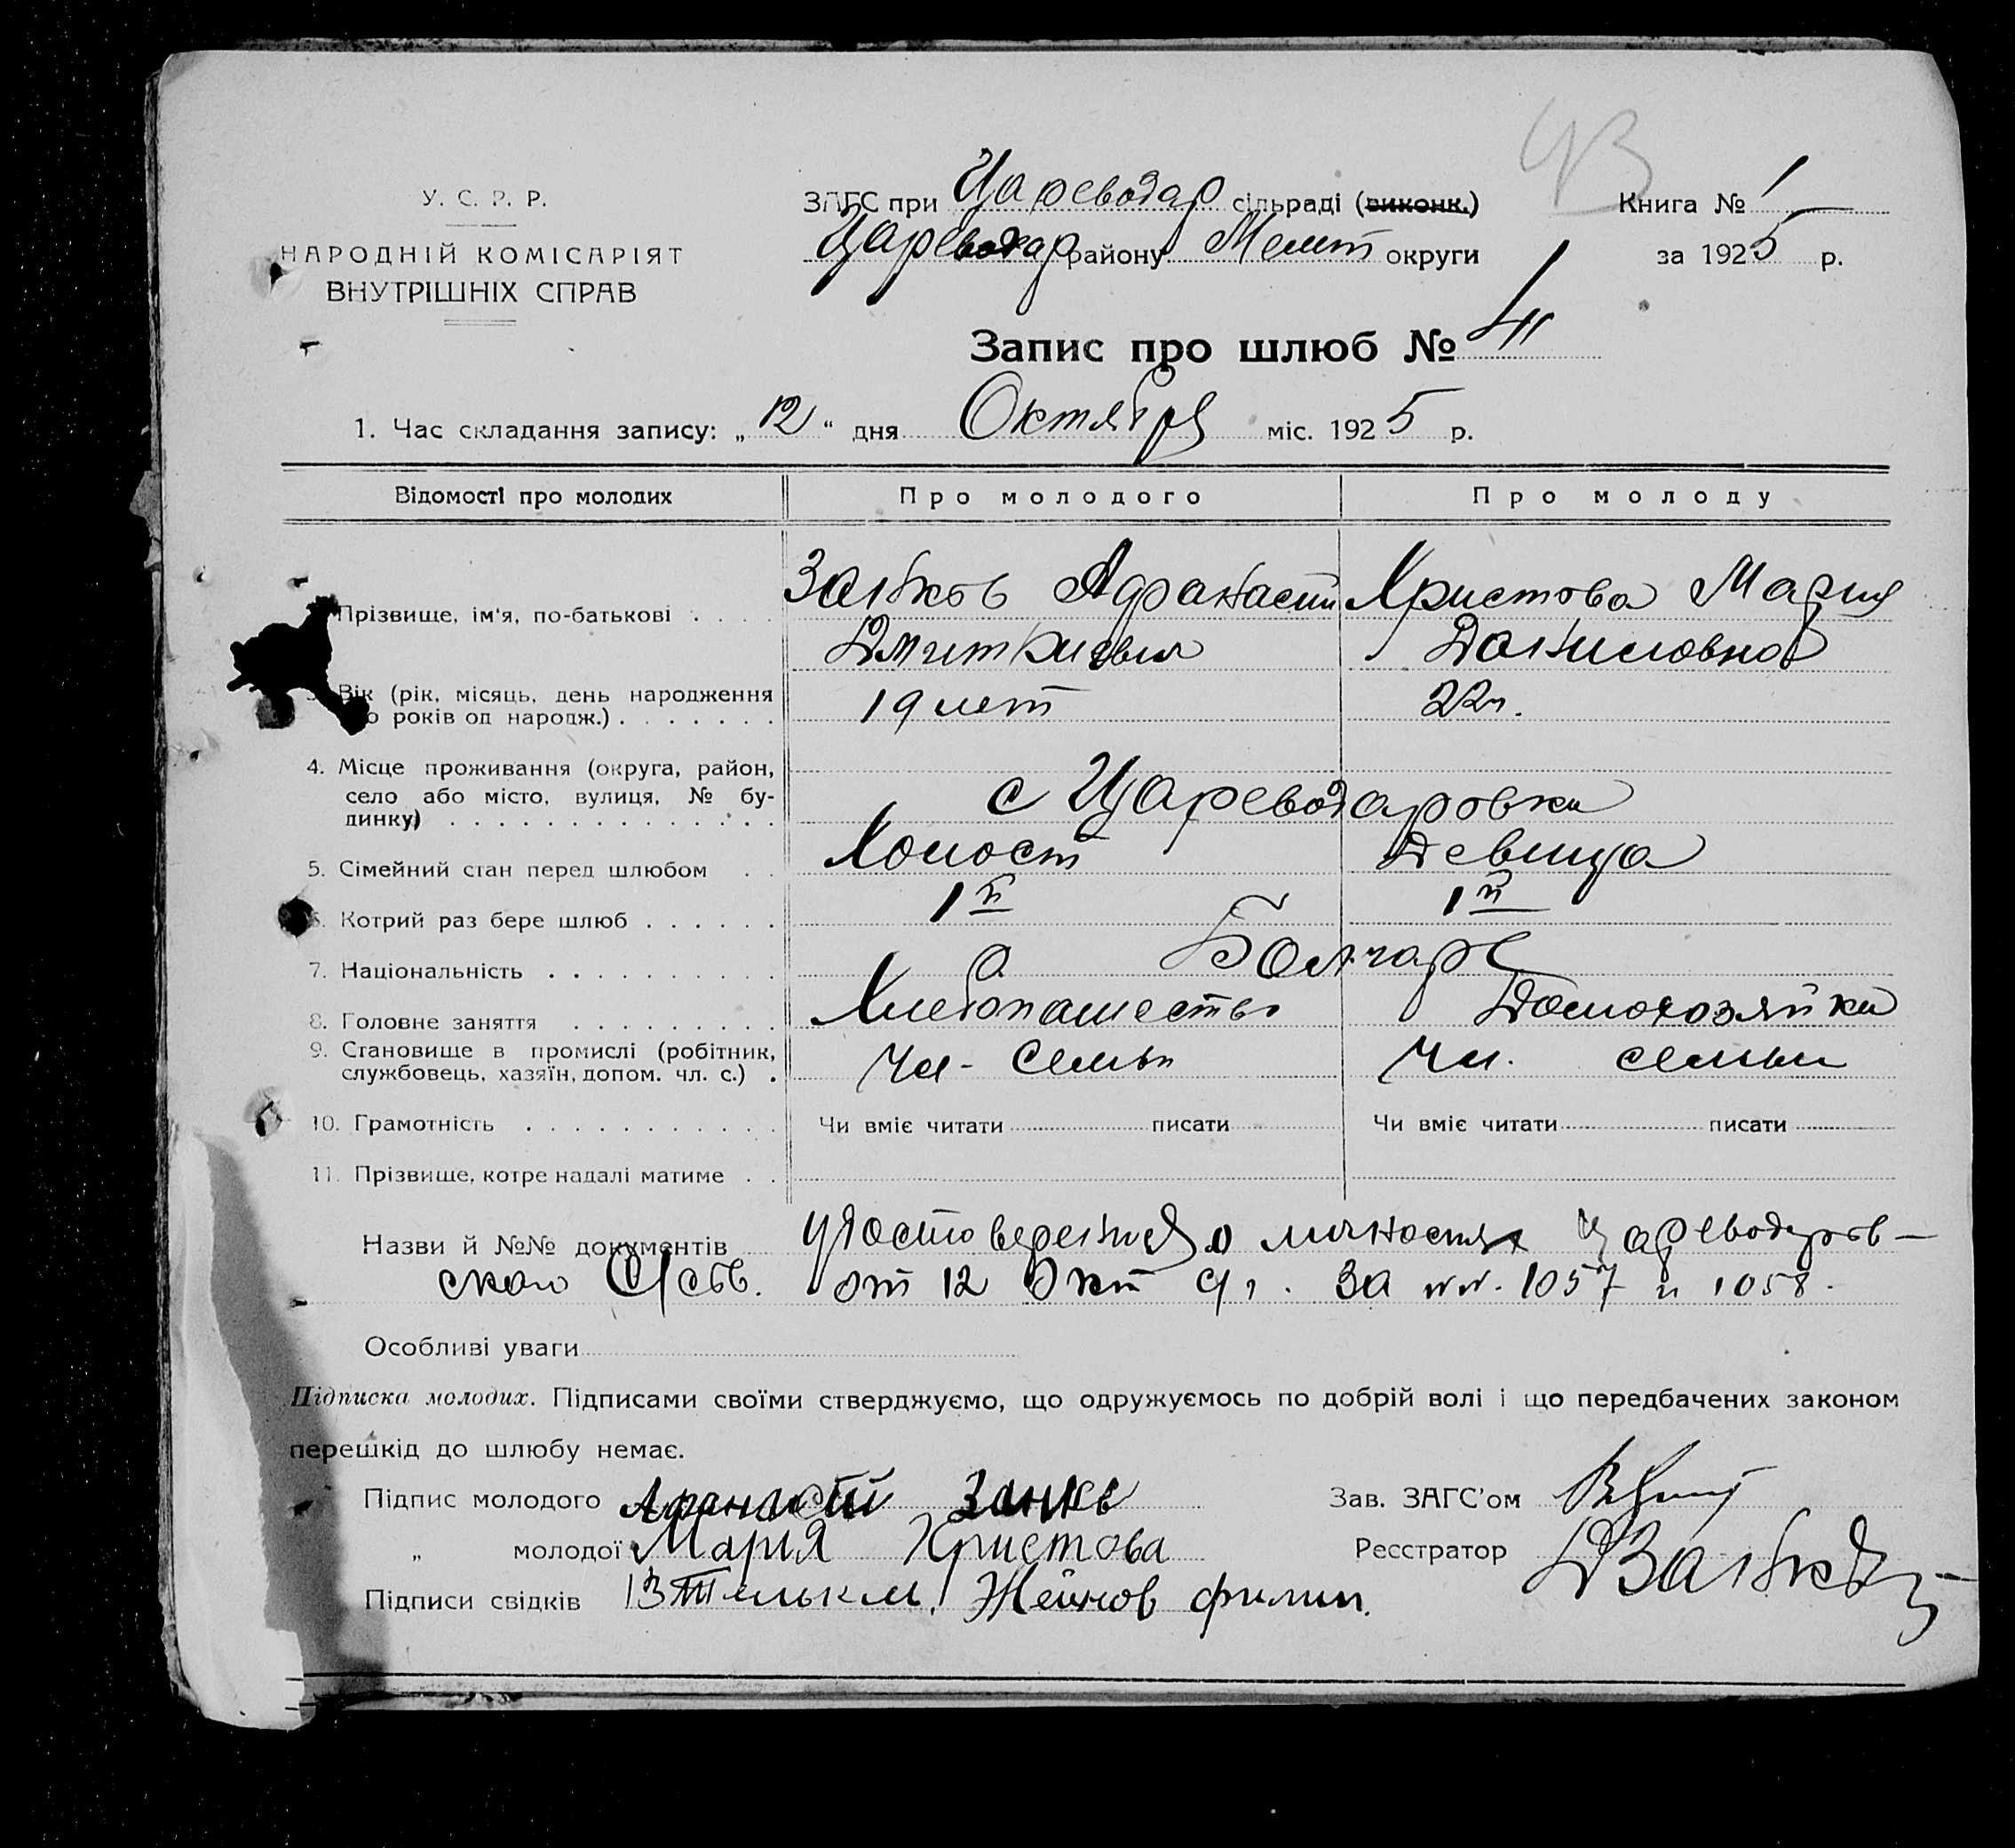 43
У. С. Р. Р.
НАРОДНІЙ КОМІСАРІЯТ
ВНУТРІШНІХ СПРАВ
ЗАГС при Цареводар сільраді (виконк.)
Цареводар району Мелит округи
Книга № 1
за 1925 р.
Запис про шлюб №
1. Час складання запису: „12“ дня Октября міс. 1925 р.
Відомості про молодих Про молодого Про молоду
Прізвище, ім'я, по-батькові . . . . Занков Афанасий Христова Мария
Дмитриевич Даниловна
3. Вік (рік, місяць, день народження 19 лет 22 г.
років од народж.) . . . . . . .
4. Місце проживання (округа, район,
село або місто, вулиця, № бу- с Цареводаровки
динку) . . . . . . . . . . . . . .
5. Сімейний стан перед шлюбом . . Холост Девица
6. Котрий раз бере шлюб . . . . . . 1й 1й
7. Національність . . . . . . . . . . Болгаре
8. Головне заняття . . . . . . . . . Хлебопашество Домохозяйка
9. Становище в промислі (робітник, Чл. семьи Чл. семьи
службовець, хазяїн, допом. чл. с.) .
10. Грамотність . . . . . . . . . . . Чи вміє читати писати Чи вміє читати писати
11. Прізвище, котре надалі матиме . .
Назви й №№ документів удостоверения о личности Цареводаров-
ского С/сов. от 12 Окт с/г. за №№. 1057 и 1058.
Особливі уваги
Підписка молодих. Підписами своїми стверджуємо, що одружуємось по добрій волі і що передбачених законом
перешкід до шлюбу немає.
Підпис молодого Афанасій Занкв Зав. ЗАГС'ом
„ молодої Мария Христова Реєстратор ДЗанков
Підписи свідків Жейнов филип.